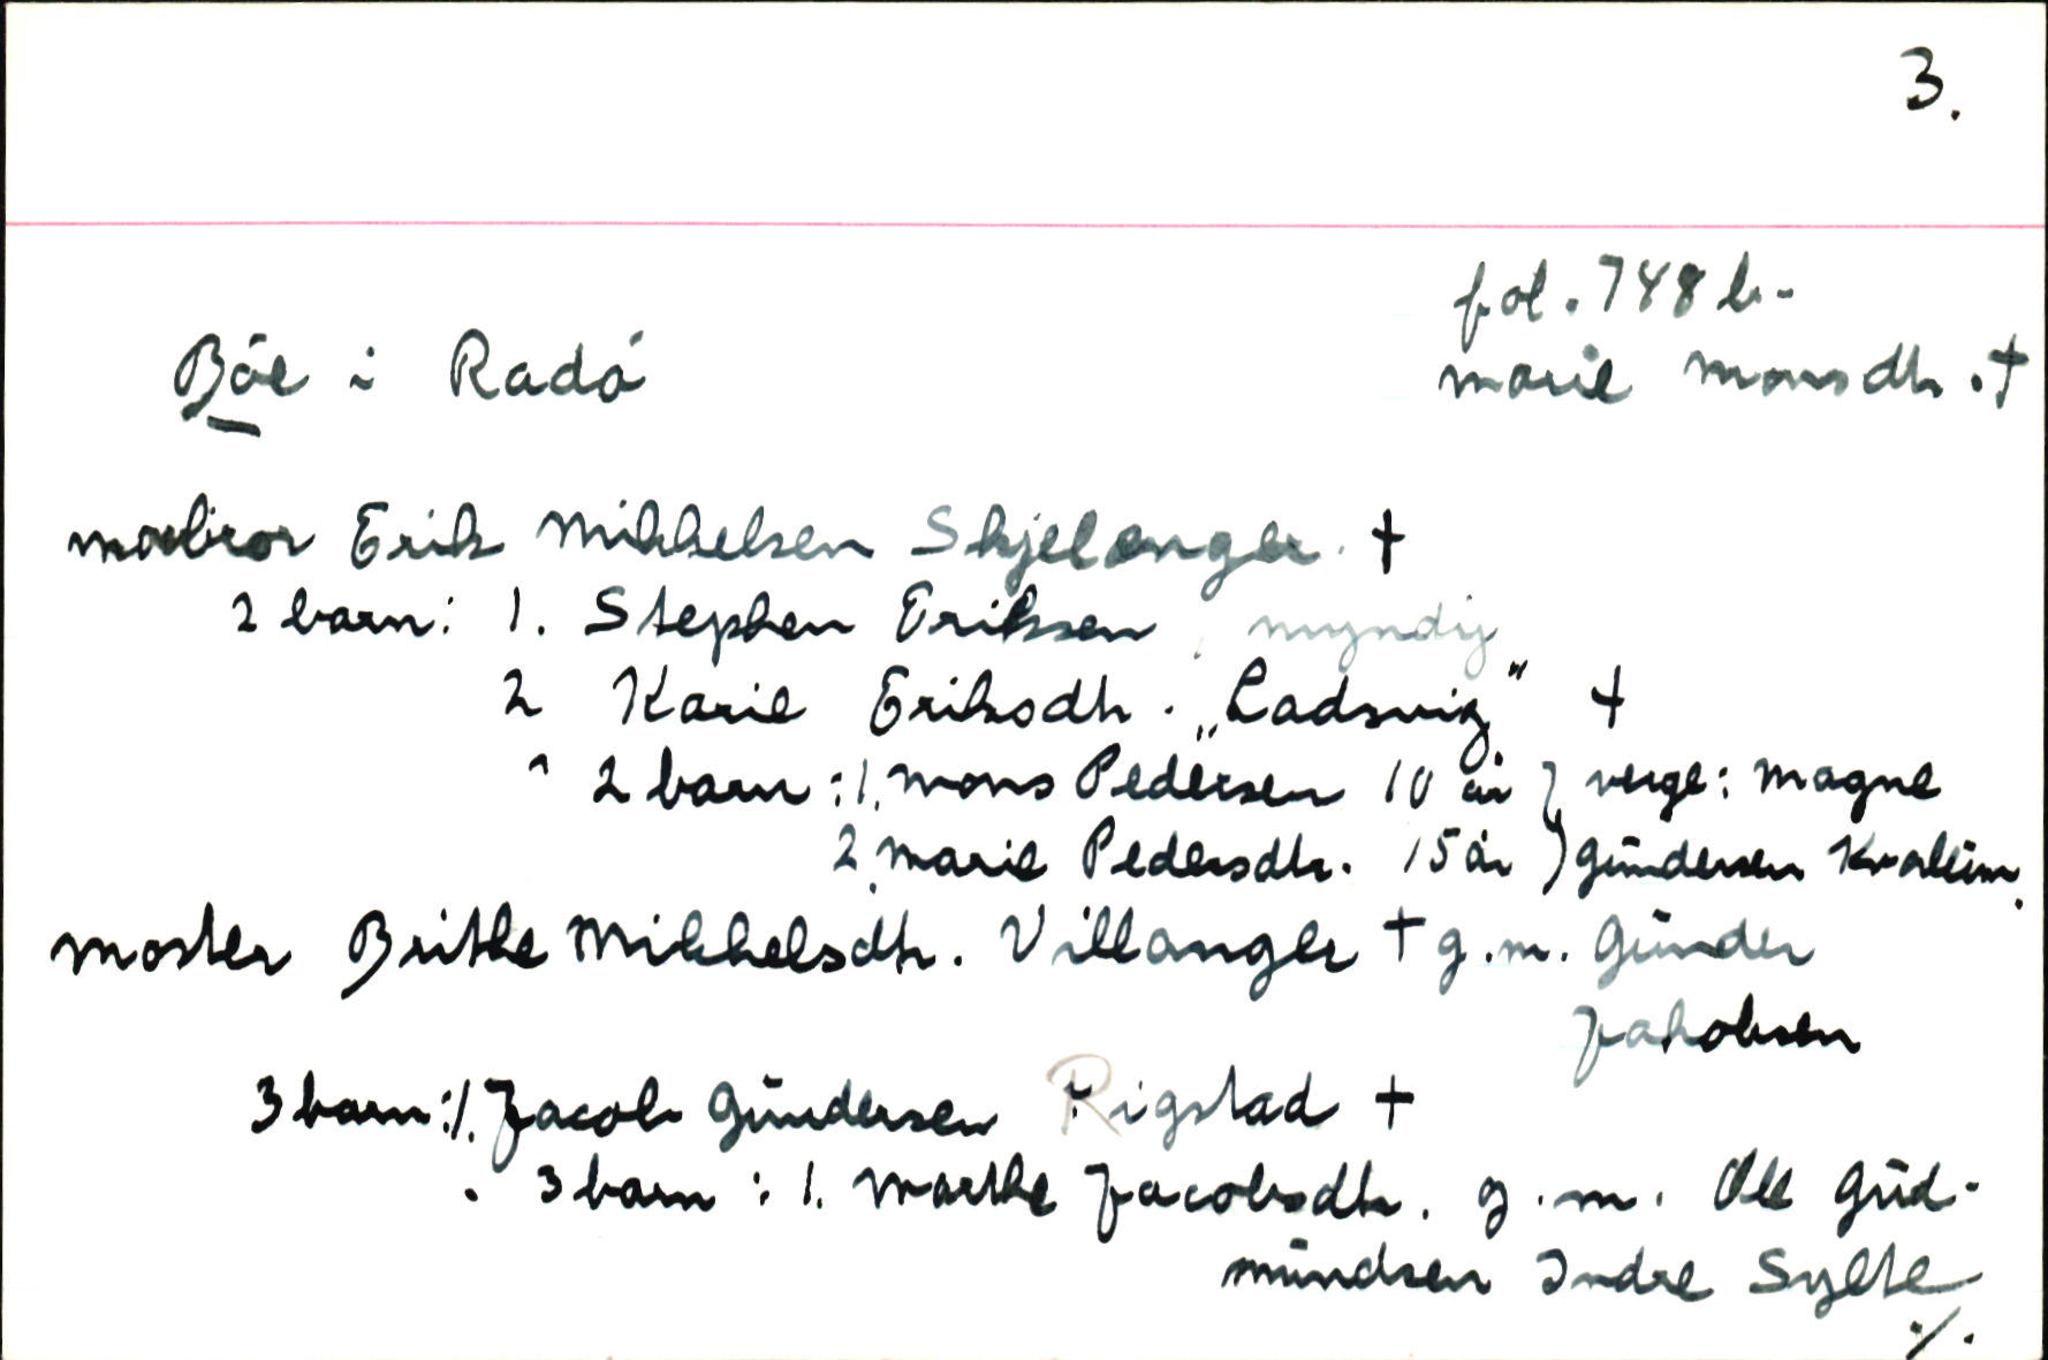 3.
fol. 748 b.
Böe i Radö
Marie Monsdtr. †
morbror Erik Mikkelsen Skjelanger. †
2 barn: 1. Stephen Eriksen, myndig
2 Karie Eriksdtr. „Ladsvig" †
2 barn: 1. Mons Pedersen 10 år } verge: Magne
2. Marie Pedersdtr. 15 år ) Gündersen Kvalüm.
moster Brithe Mikkelsdtr. Villanger † g.m. Günder
Jakobsen
3 barn: 1. Jacob Gündersen Rigstad †
3 barn: 1. Marthe Jacobsdtr. g.m. Ole Güd-
mündsen Indre Sylte
./.